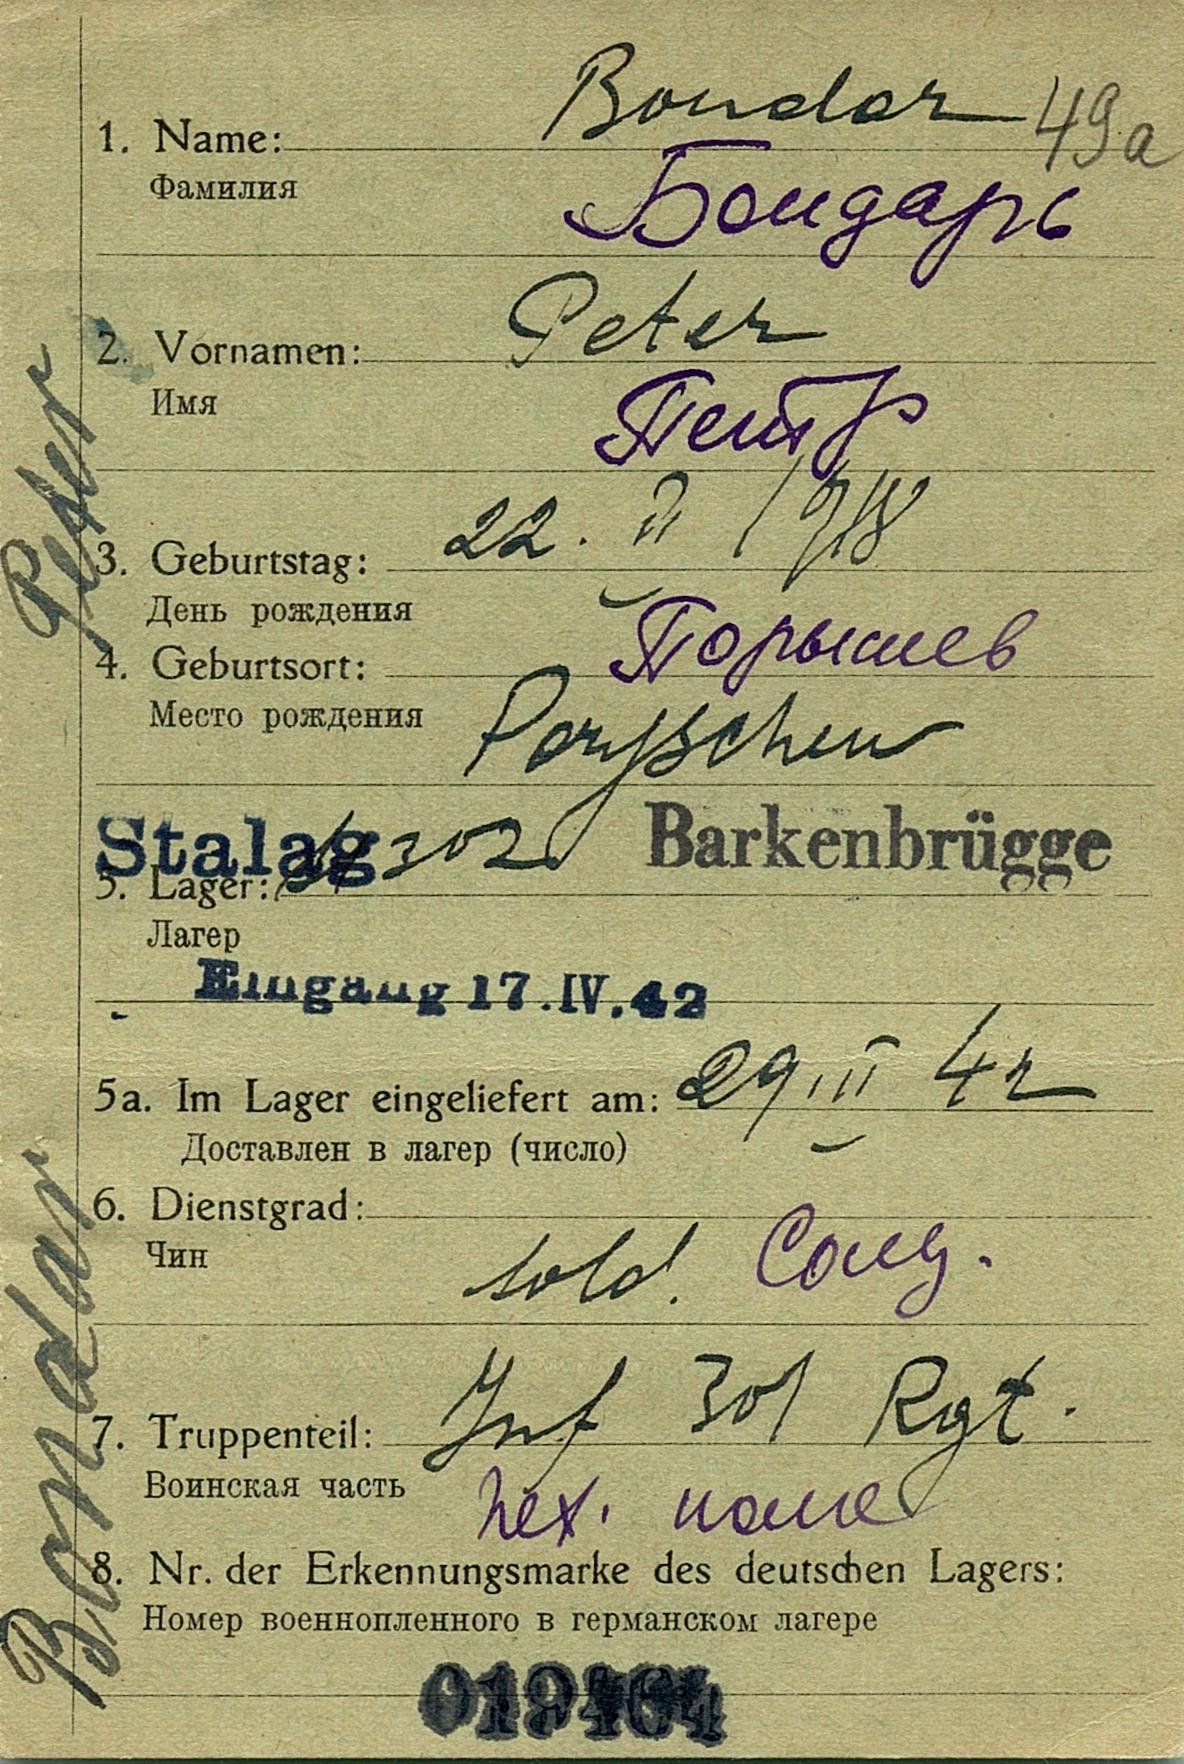 Bondar 49a
1. Name:
Фамилия
Бондарь
Peter
2. Vornamen:
Имя
Петр
22. II 1918
3. Geburtstag:
День рождения
Порышев
4. Geburtsort:
Место рождения
Poryschew
Stalag 302 Barkenbrügge
5. Lager:
Лагерь
Eingang 17.IV.42
5a. Im Lager eingeliefert am: 29 III 42
Доставлен в лагер (число)
6. Dienstgrad:
Чин
sold. Солд.
7. Truppenteil: Inf 301 Rgt.
Воинская часть
пех. полк
8. Nr. der Erkennungsmarke des deutschen Lagers:
Номер военнопленного в германском лагере
Bondar Peter